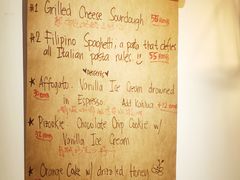 #1 Grilled Cheese Sourdough
#2 Filipino Spaghetti, a pasta that defies
all Italian pasta rules
Desserts
* Affogato. Vanilla Ice Cream drowned
in Espresso. Add Kahlua +12
* Pizookie. Chocolate Chip Cookie w/
Vanilla Ice Cream
* Orange Cake w/ drizzled Honey